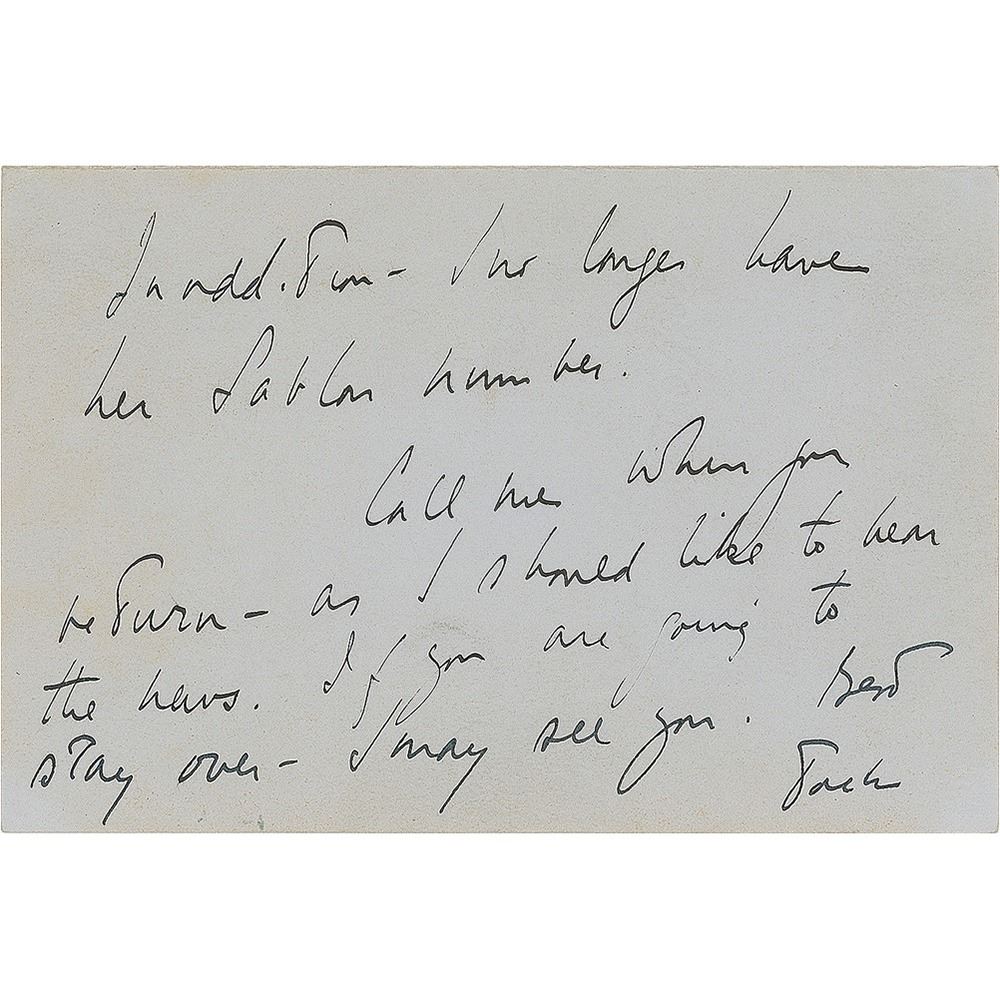 In addition - I no longer have
her number.
Call me when you
return - as I should like to hear
the news. If you are going to
stay over - I may see you. Best
Jack